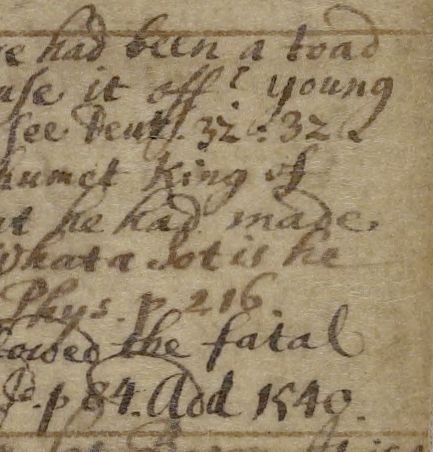 re had been a toad
ase it off. young
see Deut. 32: 32.
humet King of
at he had made
what a Sot is he
Phys. p 216.
lowed the fatal
p 84. Add 1540.